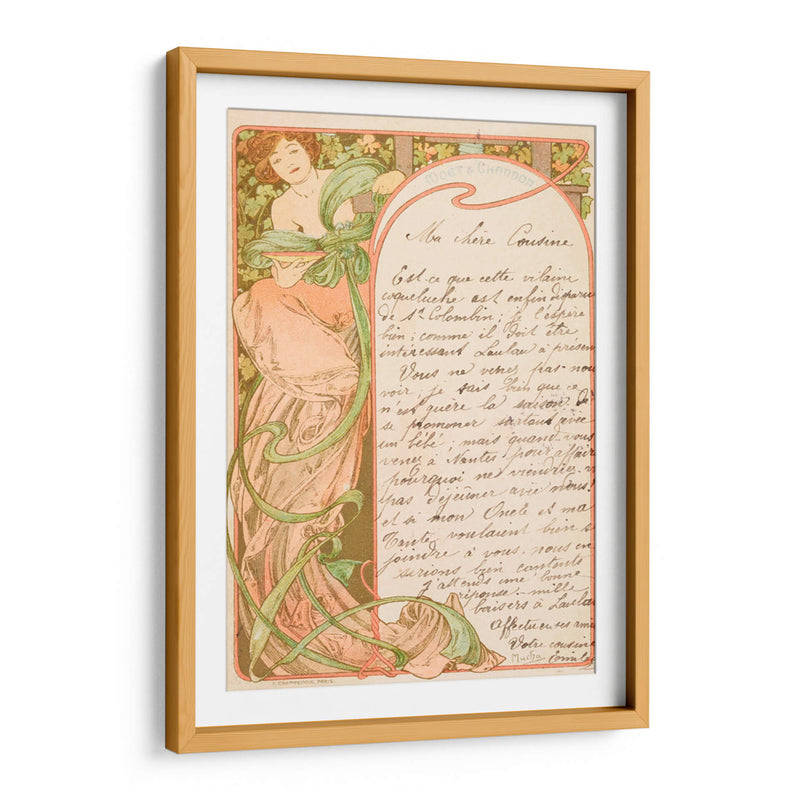 MOËT & CHANDON
Ma chère Cousine
Est-ce que cette vilaine
coqueluche est enfin disparu
de St Colombin; je l'espère
bien; comme il doit être
intéressant Laulau à présen
Vous ne venez pas nou
voir, je sais bien que ce
n'est guère la saison de
se promener surtout avec
un bébé; mais quand vous
venez à Nantes pour affair
pourquoi ne viendriez
pas déjeuner avec nous!
et si mon Oncle et ma
Tante voulaient bien s
joindre à vous, nous en
serions bien contents
J'attends une bonne
réponse. mille
baisers à Laulau
Affectueuses ami
Votre cousine
Mucha
F. CHAMPENOIS, PARIS